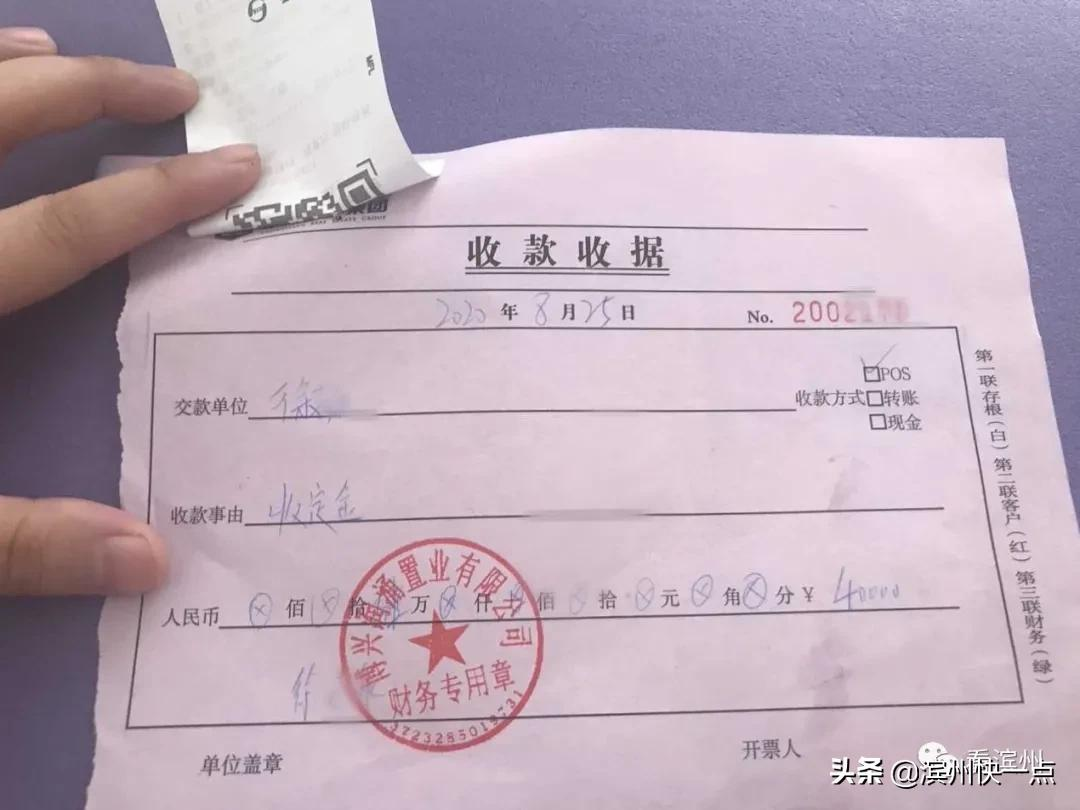 收款收据
2020年8月25日 No. 2002
POS
交款单位 徐 收款方式 转账
现金
收款事由 收定金
人民币 ⊗佰 拾 万⊗仟 佰 拾 元⊗角⊗分 ¥ 40000
置业有限公司
财务专用章
单位盖章 开票人
第一联存根(白)第二联客户(红)第三联财务(绿)
看滨州
头条 @滨州快一点